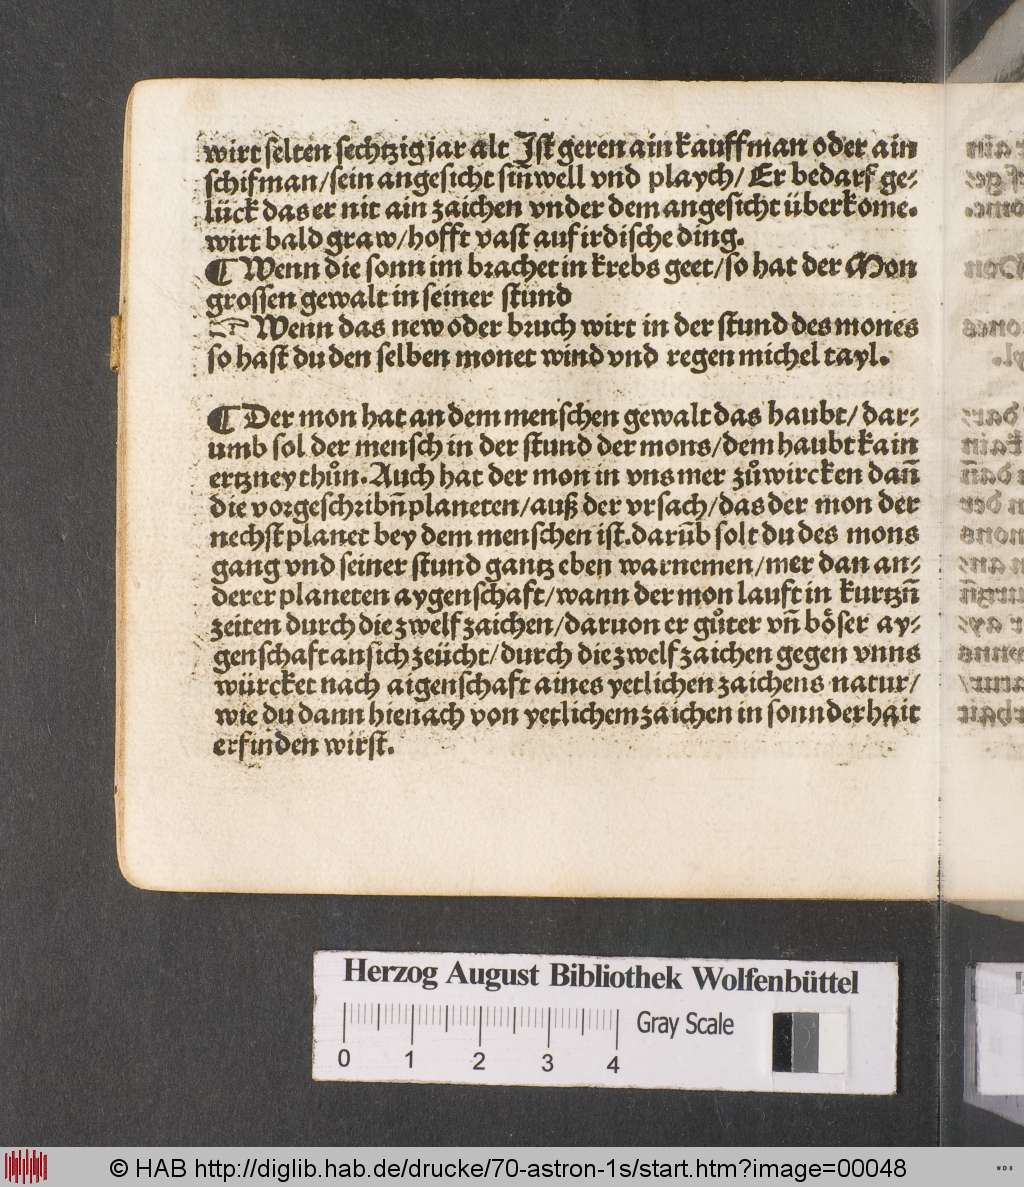 wirt selten sechtzig jar alt Ist geren ain kauffman oder ain
schifman/sein angesicht sinnwell vnd playch/ Er bedarf ge⸗
lück das er nit ain zaichen vnder dem angesicht überkome.
wirt bald graw/hofft vast auf irdische ding.
¶ Wenn die sonn im brachet in krebs geet/so hat der Mon
grossen gewalt in seiner stund
☞ Wenn das new oder bruch wirt in der stund des mones
so hast du den selben monet wind vnd regen michel tayl.
¶ Der mon hat an dem menschen gewalt das haubt/ dar⸗
umb sol der mensch in der stund der mons/dem haubt kain
ertzney thůn. Auch hat der mon in vns mer zůwircken dañ
die vorgeschribñ planeten/auß der vrsach/das der mon der
nechst planet bey dem menschen ist. darūb solt du des mons
gang vnd seiner stund gantz eben warnemen/mer dan an⸗
derer planeten aygenschaft/wann der mon lauft in kurtzñ
zeiten durch die zwelf zaichen/daruon er gůter vñ böser ay⸗
genschaft an sich zeücht/durch die zwelf zaichen gegen vnns
würcket nach aigenschaft aines yetlichen zaichens natur/
wie du dann hienach von yetlichem zaichen in sonnderhait
erfinden wirst.
Herzog August Bibliothek Wolfenbüttel
0 1 2 3 4 Gray Scale
© HAB http://diglib.hab.de/drucke/70-astron-1s/start.htm?image=00048